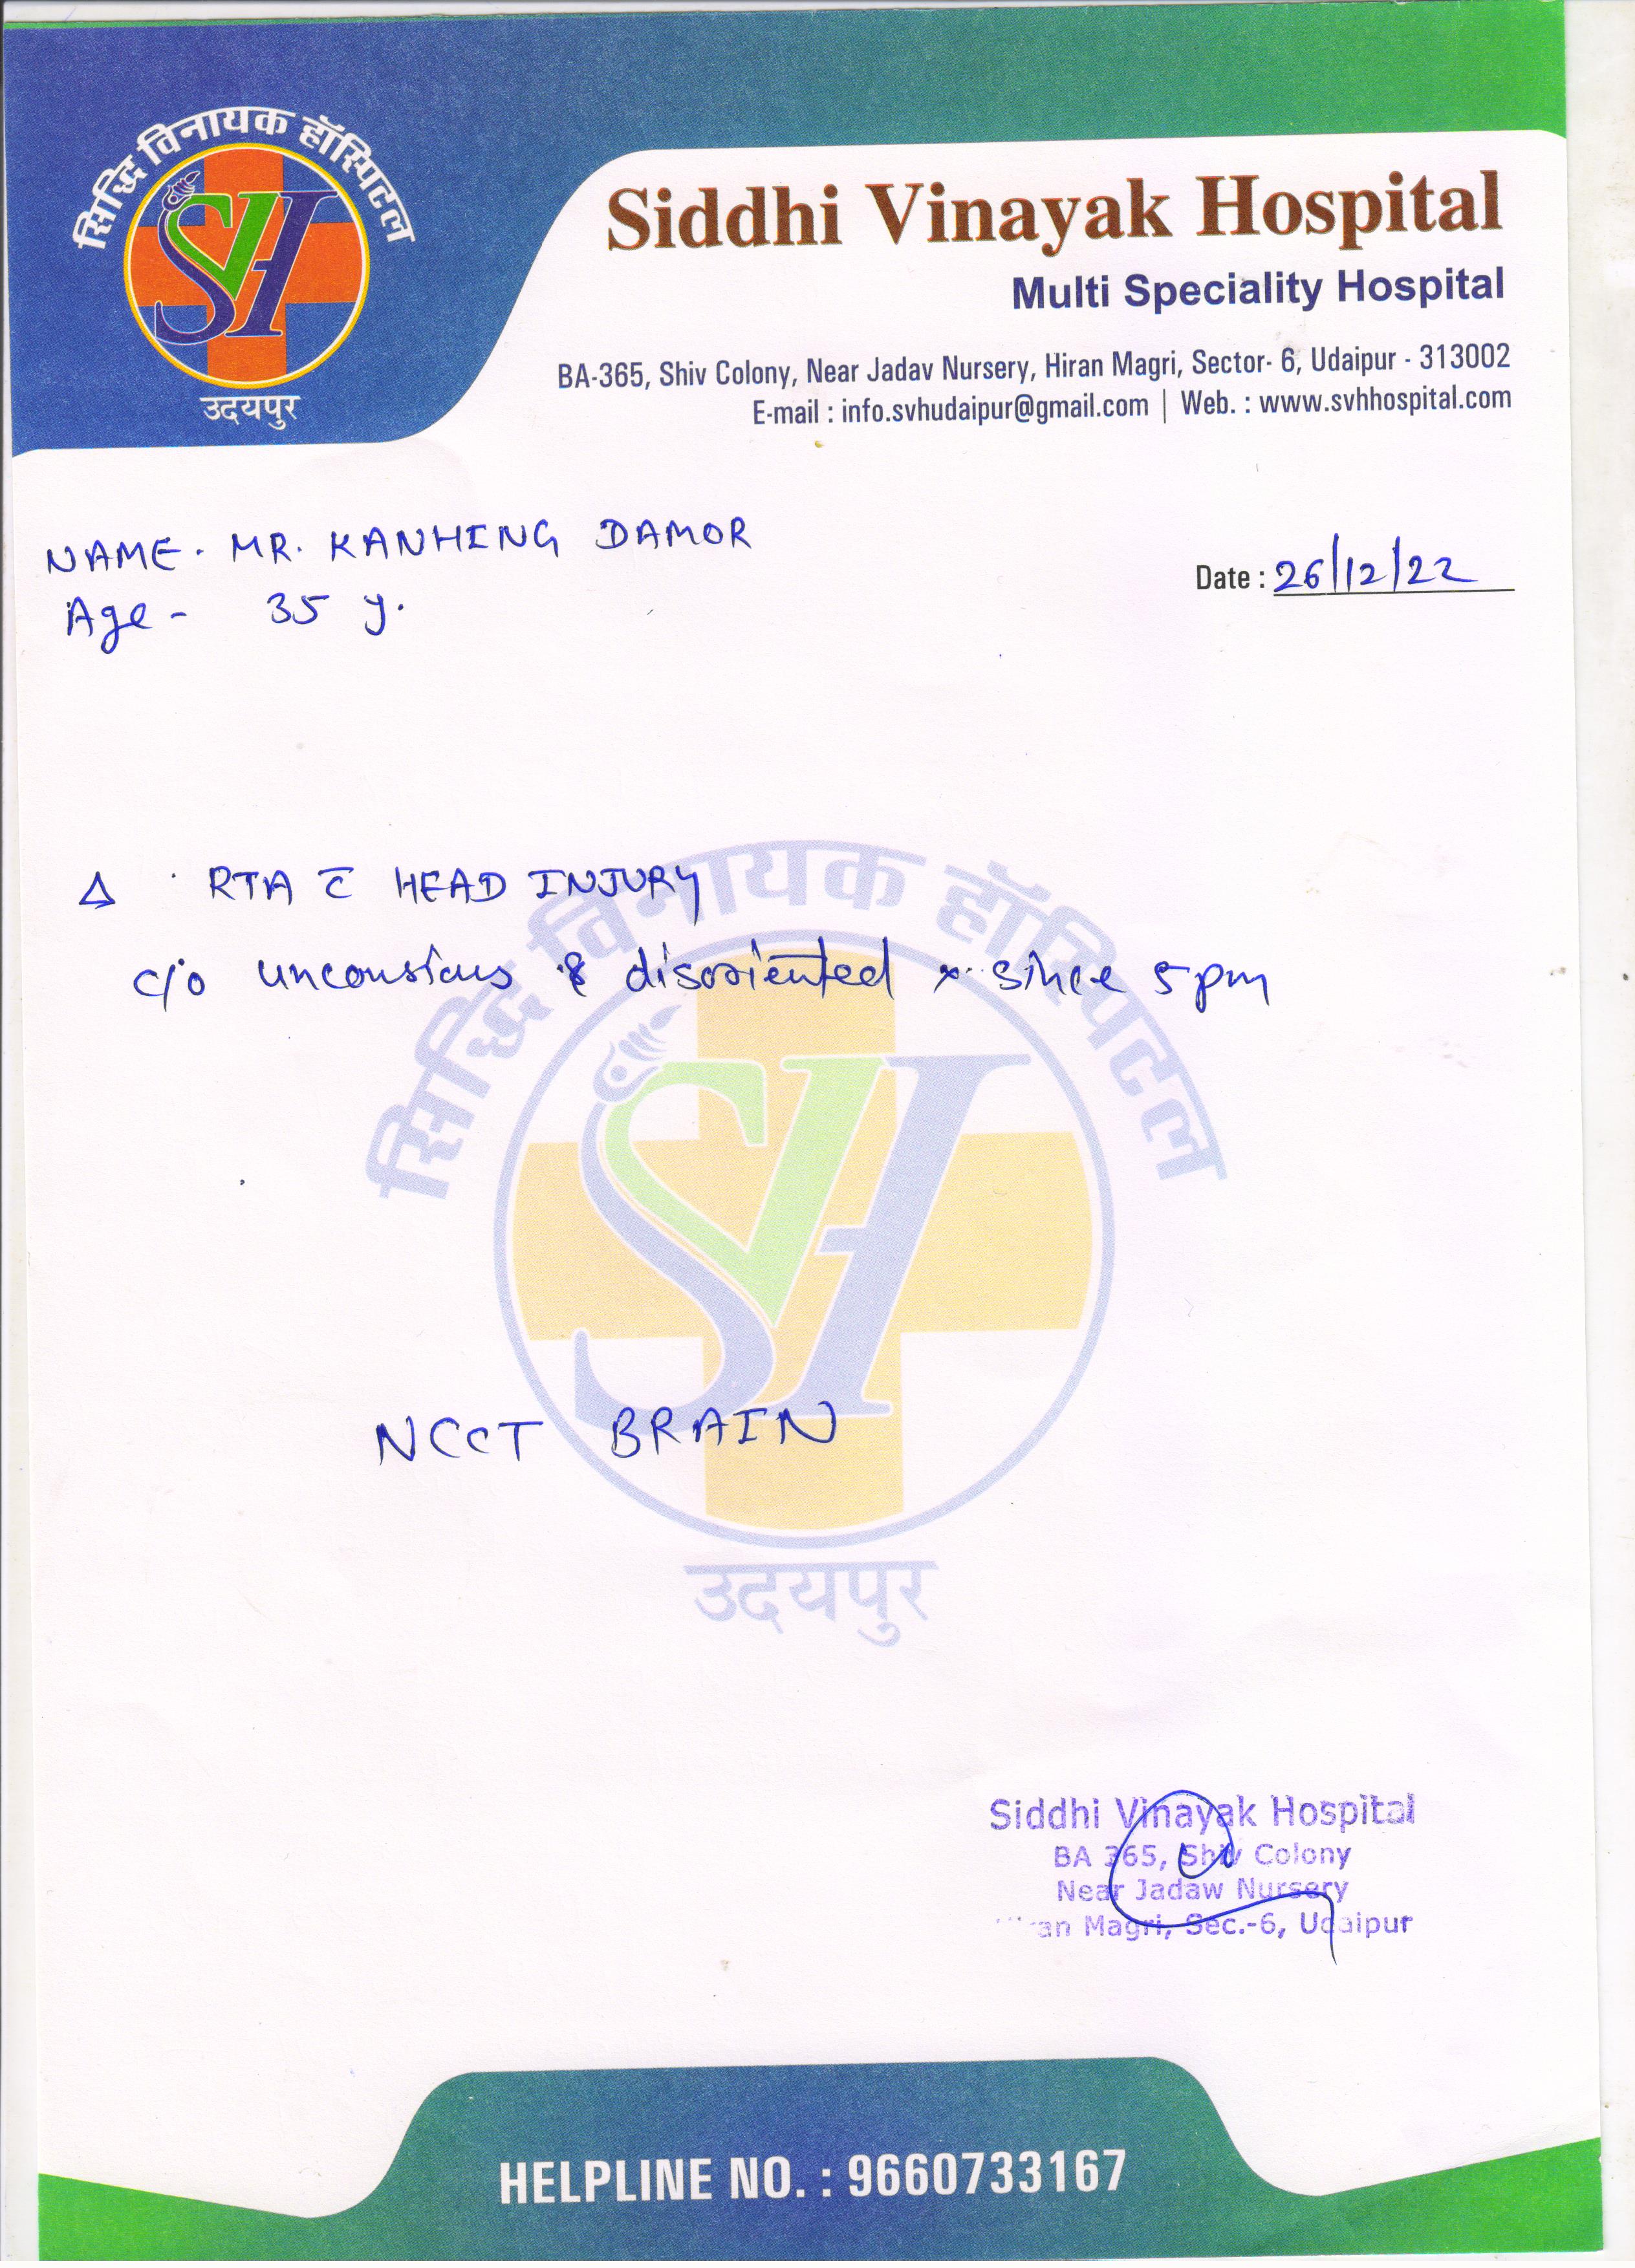 सिद्धि विनायक हॉस्पिटल
SVH
उदयपुर
Siddhi Vinayak Hospital
Multi Speciality Hospital
BA-365, Shiv Colony, Near Jadav Nursery, Hiran Magri, Sector- 6, Udaipur - 313002
E-mail : info.svhudaipur@gmail.com | Web. : www.svhhospital.com
NAME. MR. KANHENG DAMOR
Date : 26/12/22
Age - 35 y.
Δ RTA c̄ HEAD INJURY
c/o unconsious & disoriented × since 5 pm
सिद्धि विनायक हॉस्पिटल
SVH
NCCT BRAIN
उदयपुर
Siddhi Vinayak Hospital
BA 365, Shiv Colony
Near Jadaw Nursery
Magri, Sec.-6, Udaipur
HELPLINE NO. : 9660733167